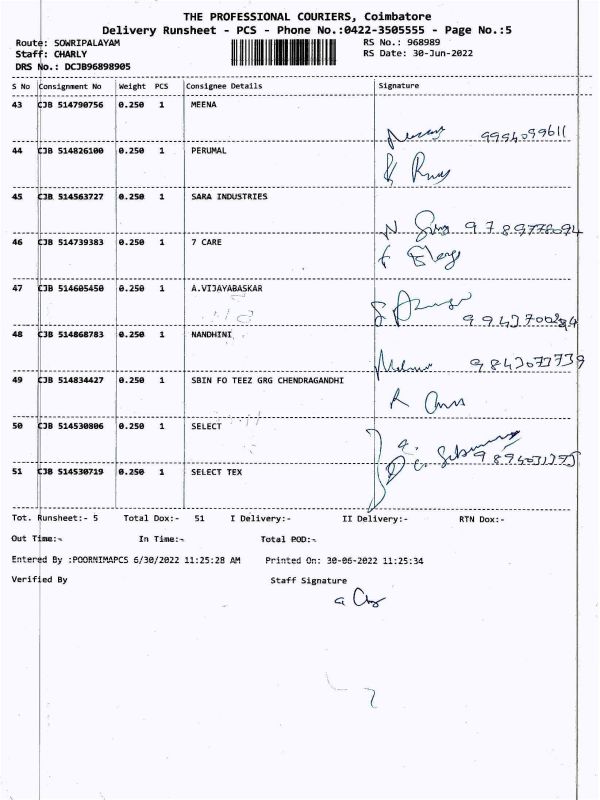 THE PROFESSIONAL COURIERS, Coimbatore
Delivery Runsheet - PCS - Phone No.:0422-3505555 - Page No.:5
Route: SOWRIPALAYAM RS No.: 968989
Staff: CHARLY RS Date: 30-Jun-2022
DRS No.: DCJB96898905
S No Consignment No Weight PCS Consignee Details Signature
43 CJB 514790756 0.250 1 MEENA
9994099611
44 CJB 514826100 0.250 1 PERUMAL
45 CJB 514563727 0.250 1 SARA INDUSTRIES
9789778094
46 CJB 514739383 0.250 1 7 CARE
47 CJB 514605450 0.250 1 A.VIJAYABASKAR
9943700284
48 CJB 514868783 0.250 1 NANDHINI
9843073739
49 CJB 514834427 0.250 1 SBIN FO TEEZ GRG CHENDRAGANDHI
50 CJB 514530806 0.250 1 SELECT
51 CJB 514530719 0.250 1 SELECT TEX
Tot. Runsheet:- 5 Total Dox:- 51 I Delivery:- II Delivery:- RTN Dox:-
Out Time:- In Time:- Total POD:-
Entered By :POORNIMAPCS 6/30/2022 11:25:28 AM Printed On: 30-06-2022 11:25:34
Verified By Staff Signature